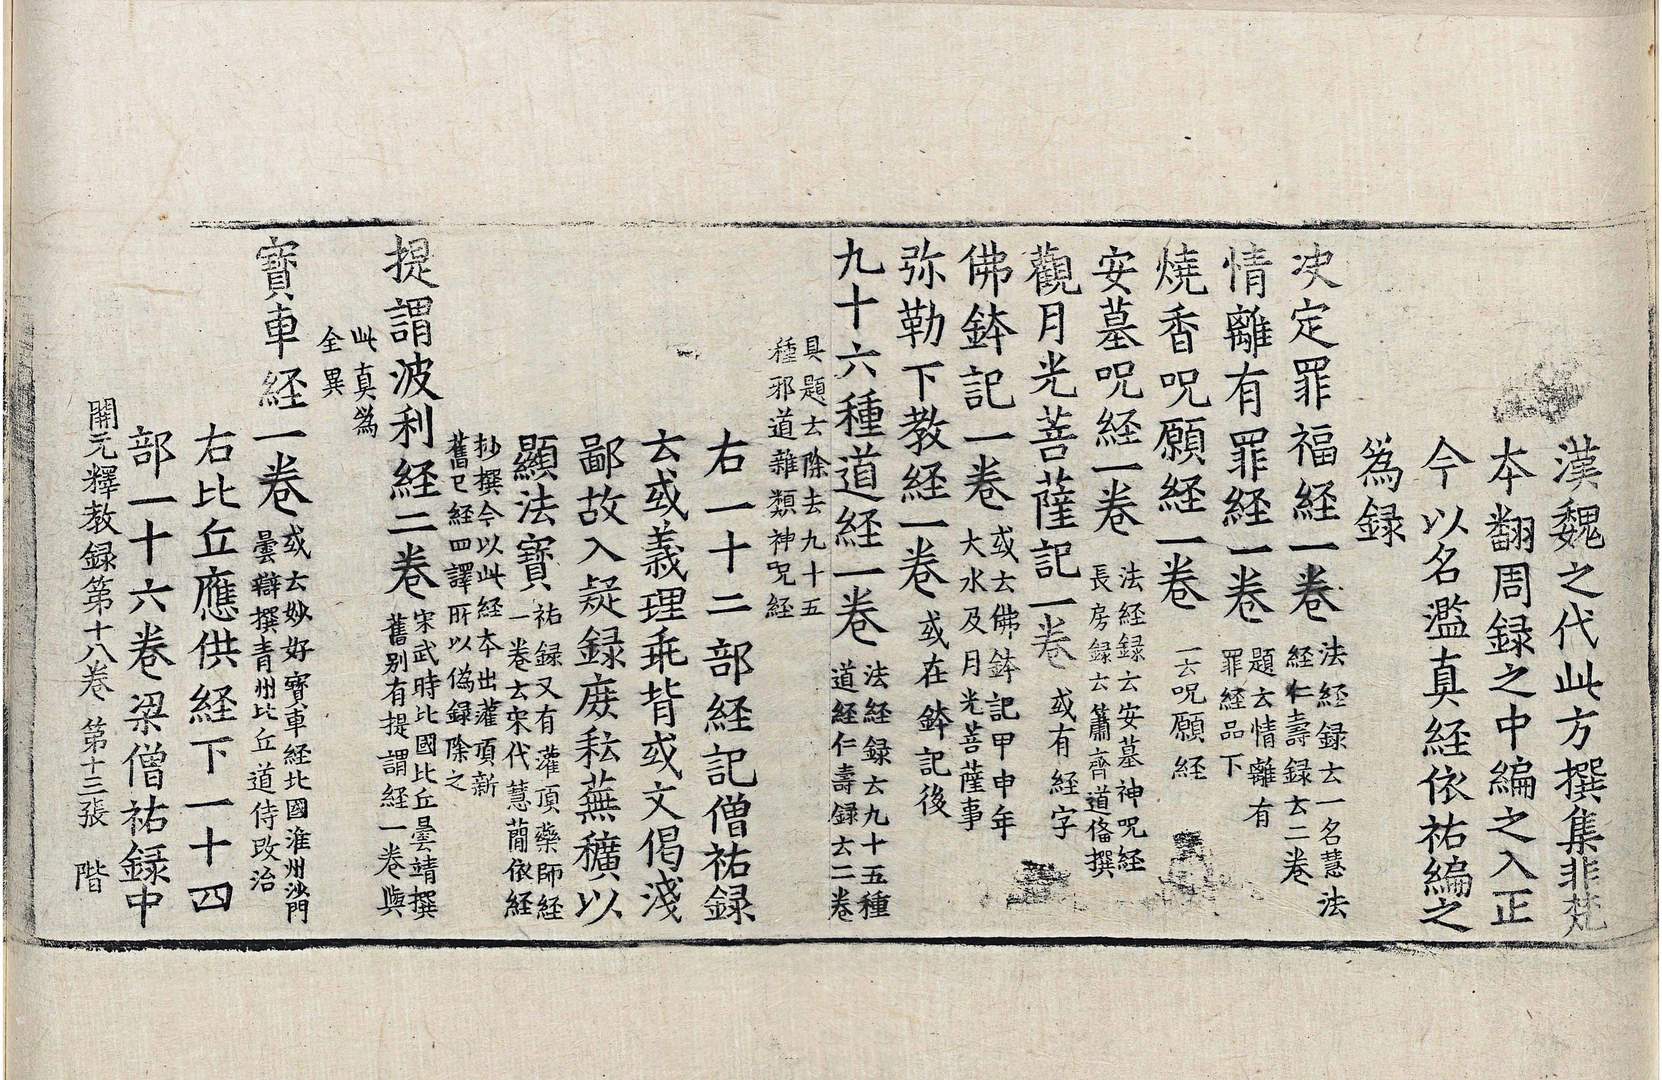 漢魏之代此方撰集非梵
本翻周録之中編之入正
今以名濫真経依祐編之
為録
决定罪福経一卷
法経録云一名慧法
経仁壽録云二卷
情離有罪経一卷
題云情離有
罪経品下
燒香呪願経一卷
一云呪願経
安墓呪経一卷
法経録云安墓神呪経
長房録云蕭齊道俻撰
觀月光菩薩記一卷
或有経字
佛鉢記一卷
或云佛鉢記甲申年
大水及月光菩薩事
弥勒下教経一卷
或在鉢記後
九十六種道経一卷
法経録云九十五種
道経仁壽録云二卷
具題云除去九十五
種邪道雜類神呪経
右一十二部経記僧祐録
云或義理乖背或文偈淺
鄙故入疑録庻耘蕪穬以
顯法寳
祐録又有灌頂藥師経
一卷云宋代慧蕳依経
抄撰今以此経本出灌頂新
舊已経四譯所以偽録除之
提謂波利経二卷
宋武時比國比丘曇靖撰
舊别有提謂経一卷與
此真為
全異
寳車経一卷
或云妙好寳車経北國淮州沙門
曇辯撰青州比丘道侍改治
右比丘應供経下一十四
部一十六卷梁僧祐録中
開元釋教録第十八卷 第十三張 階